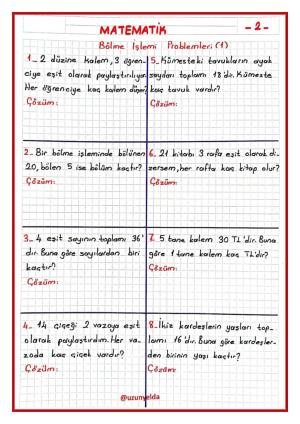 MATEMATİK
- 2 -
Bölme İşlemi Problemleri (1)
1_ 2 düzine kalem, 3 öğren-
ciye eşit olarak paylaştırılıyor.
Her öğrenciye kaç kalem düşer?
Çözüm:
2_ Bir bölme işleminde bölünen
20, bölen 5 ise bölüm kaçtır?
Çözüm:
3_ 4 eşit sayının toplamı 36'
dır. Buna göre sayılardan biri
kaçtır?
Çözüm:
4_ 14 çiçeği 2 vazoya eşit
olarak paylaştırdım. Her va-
zoda kaç çiçek vardır?
Çözüm:
5_ Kümesteki tavukların ayak
sayıları toplamı 18'dir. Kümeste
kaç tavuk vardır?
Çözüm:
6_ 21 kitabı 3 rafa eşit olarak di-
zersem, her rafta kaç kitap olur?
Çözüm:
7_ 5 tane kalem 30 TL'dir. Buna
göre 1 tane kalem kaç TL'dir?
Çözüm:
8_ İkiz kardeşlerin yaşları top-
lamı 16'dır. Buna göre kardeşler-
den birinin yaşı kaçtır?
Çözüm:
@uzunyelda